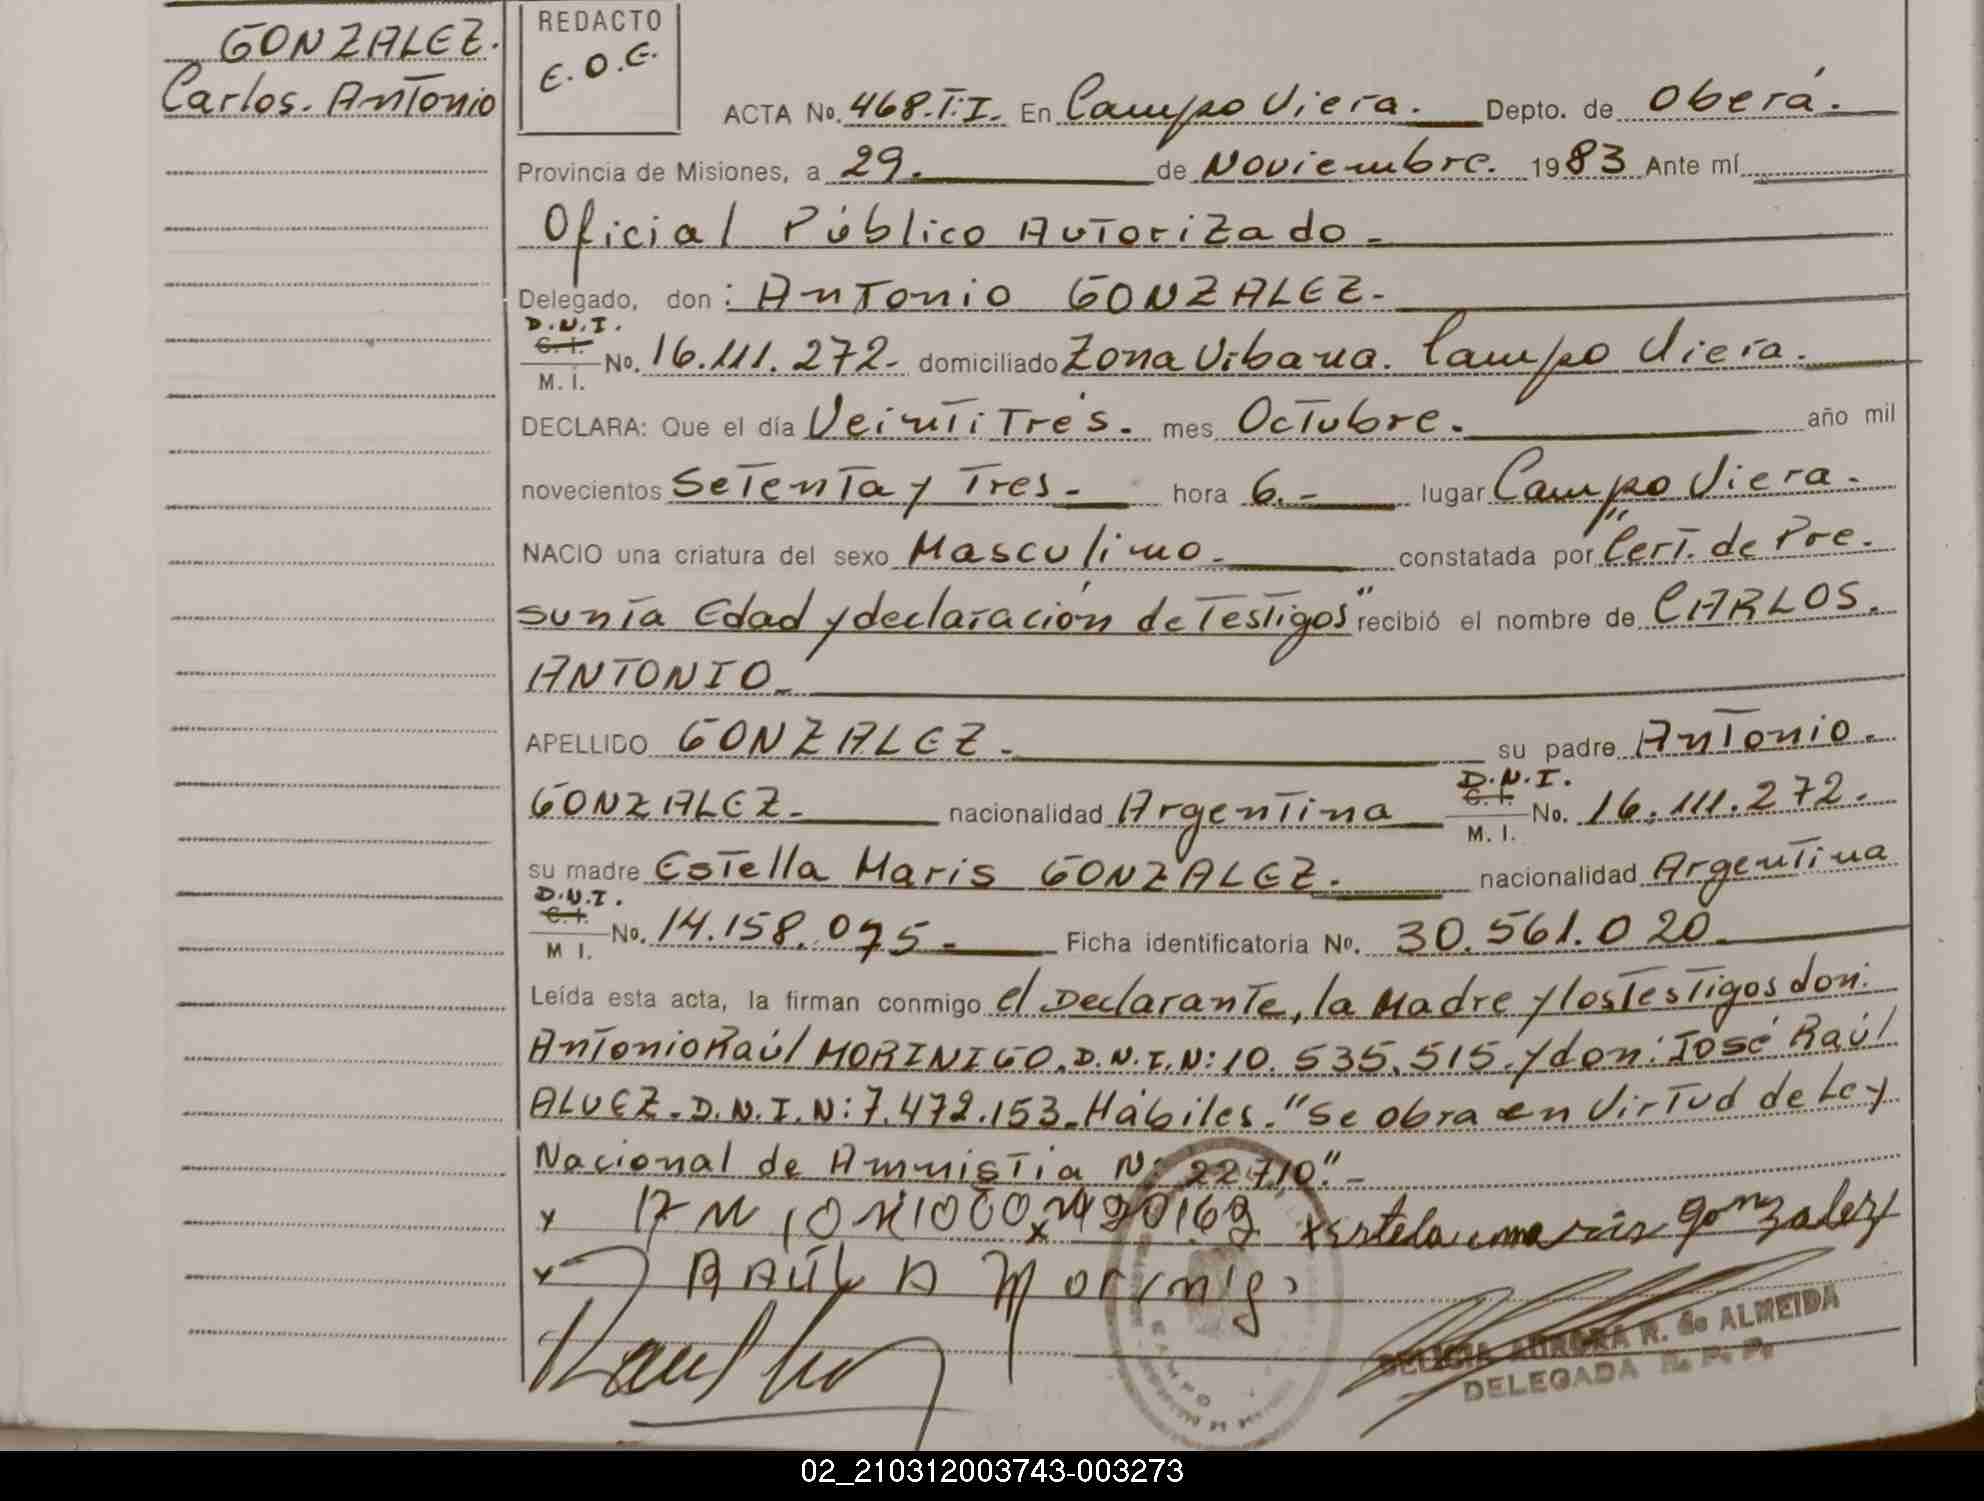 GONZALEZ.
Carlos. Antonio
REDACTO
E.O.E.
ACTA No. 468.T.I. En Campo Viera. Depto. de Oberá.
Provincia de Misiones, a 29. de Noviembre. 1983 Ante mí
Oficial Público Autorizado.
Delegado, don: Antonio GONZALEZ.
D.N.I.
C. I.
M. I. No. 16.111.272- domiciliado Zona Urbana. Campo Viera.
DECLARA: Que el día Veintitrés. mes Octubre. año mil
novecientos Setenta y Tres- hora 6.- lugar Campo Viera.
NACIO una criatura del sexo Masculino. constatada por "Cert. de Pre.
sunta Edad y declaración de Testigos" recibió el nombre de CARLOS.
ANTONIO.
APELLIDO GONZALEZ. su padre Antonio.
D.N.I.
GONZALEZ. nacionalidad Argentina C. I. M. I. No. 16.111.272.
su madre Estella Maris GONZALEZ. nacionalidad Argentina
D.N.I.
C. I.
M I. No. 14.158.075- Ficha identificatoria No. 30.561.020
Leída esta acta, la firman conmigo el Declarante, la Madre y los Testigos don:
Antonio Raúl MORINIGO. D.N.I.N: 10.535.515. y don: José Raúl
ALVEZ. D.N.I.N: 7.472.153. Hábiles. "Se obra en Virtud de Ley
Nacional de Amnistia N: 22710."-
x x x Estela maris gonzalez
x RAÚL A Morinigo
DELICIA AURORA R. de ALMEIDA
DELEGADA R. P. P.
CAMPO
02_210312003743-003273